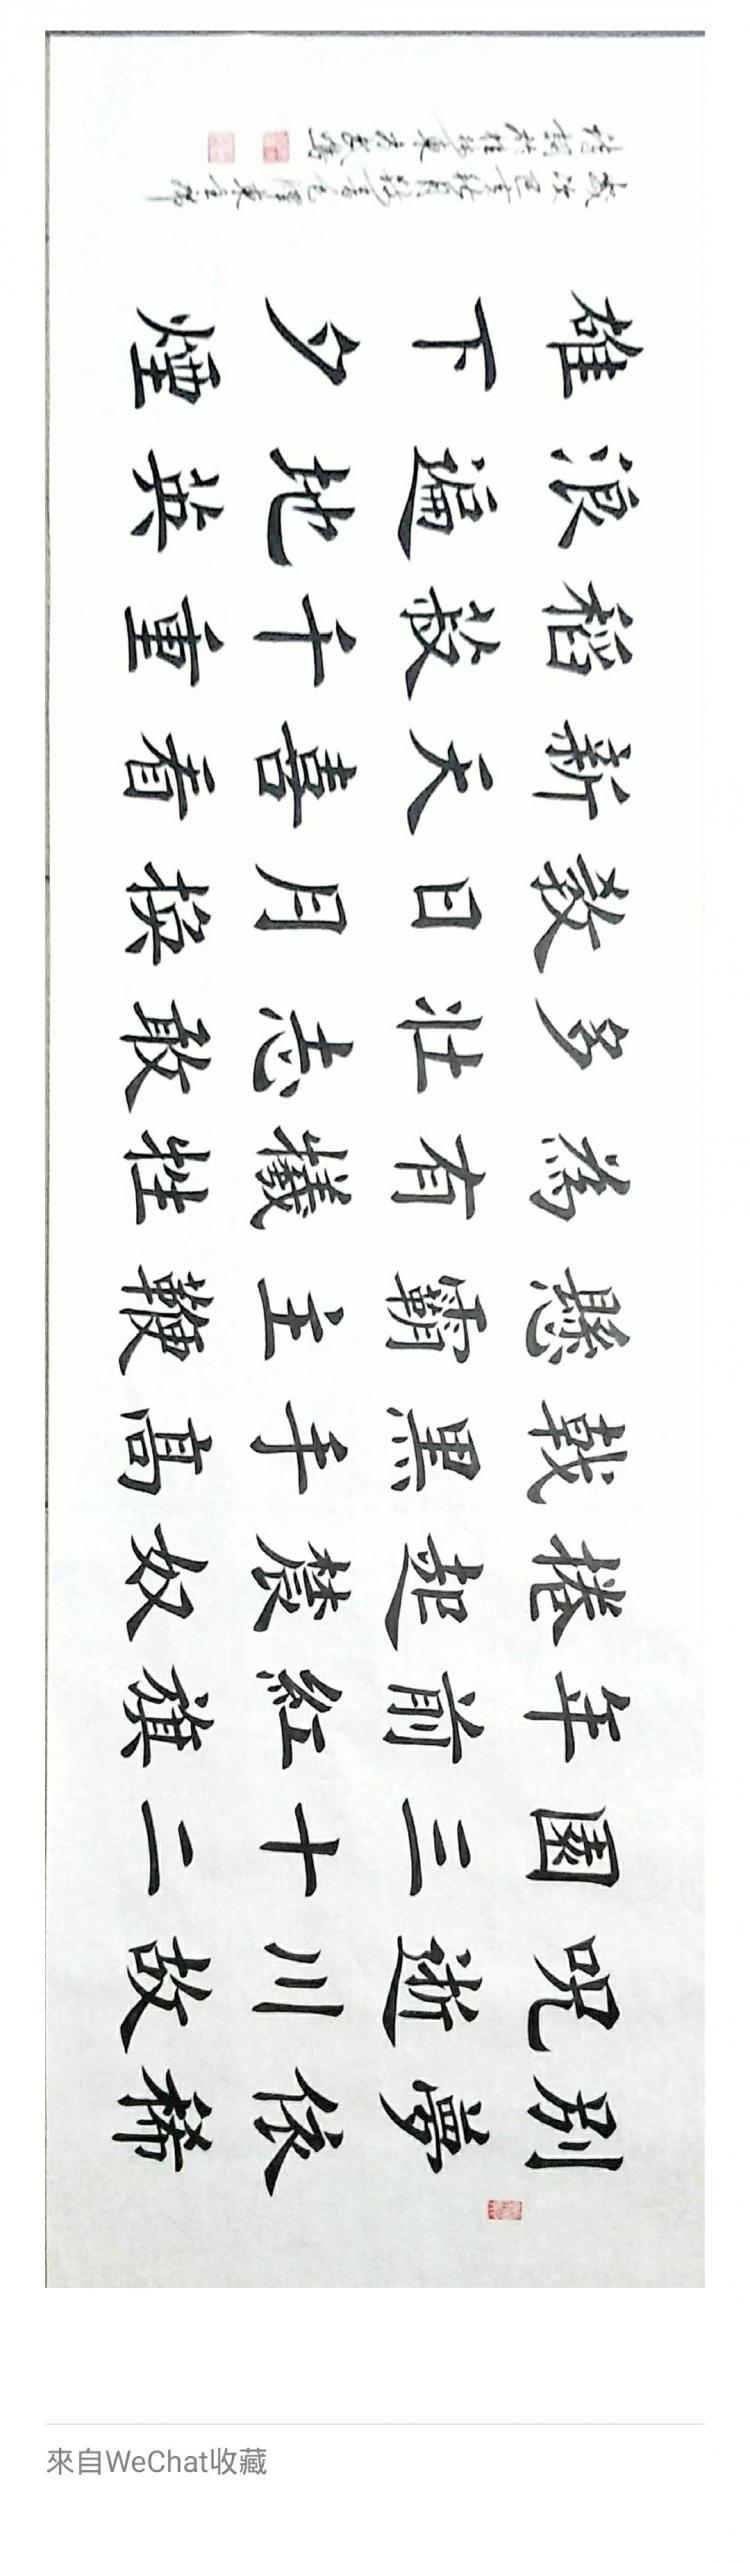 別夢依稀
咒逝川故
園三十二
年前紅旗
捲起農奴
戟黑手高
懸霸主鞭
為有犧牲
多壯志敢
教日月換
新天喜看
稻菽千重
浪遍地英
雄下夕煙
來自WeChat收藏